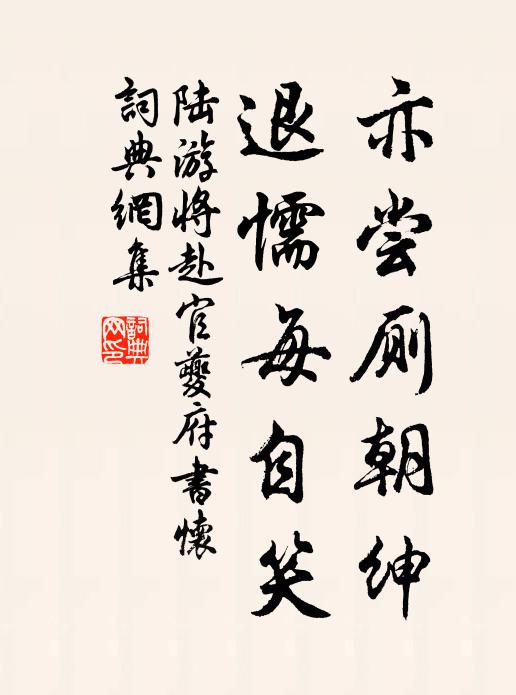 亦尝厕朝绅
退懦每自笑
陆游将赴官夔府書懷
詞典網集
詞典網印